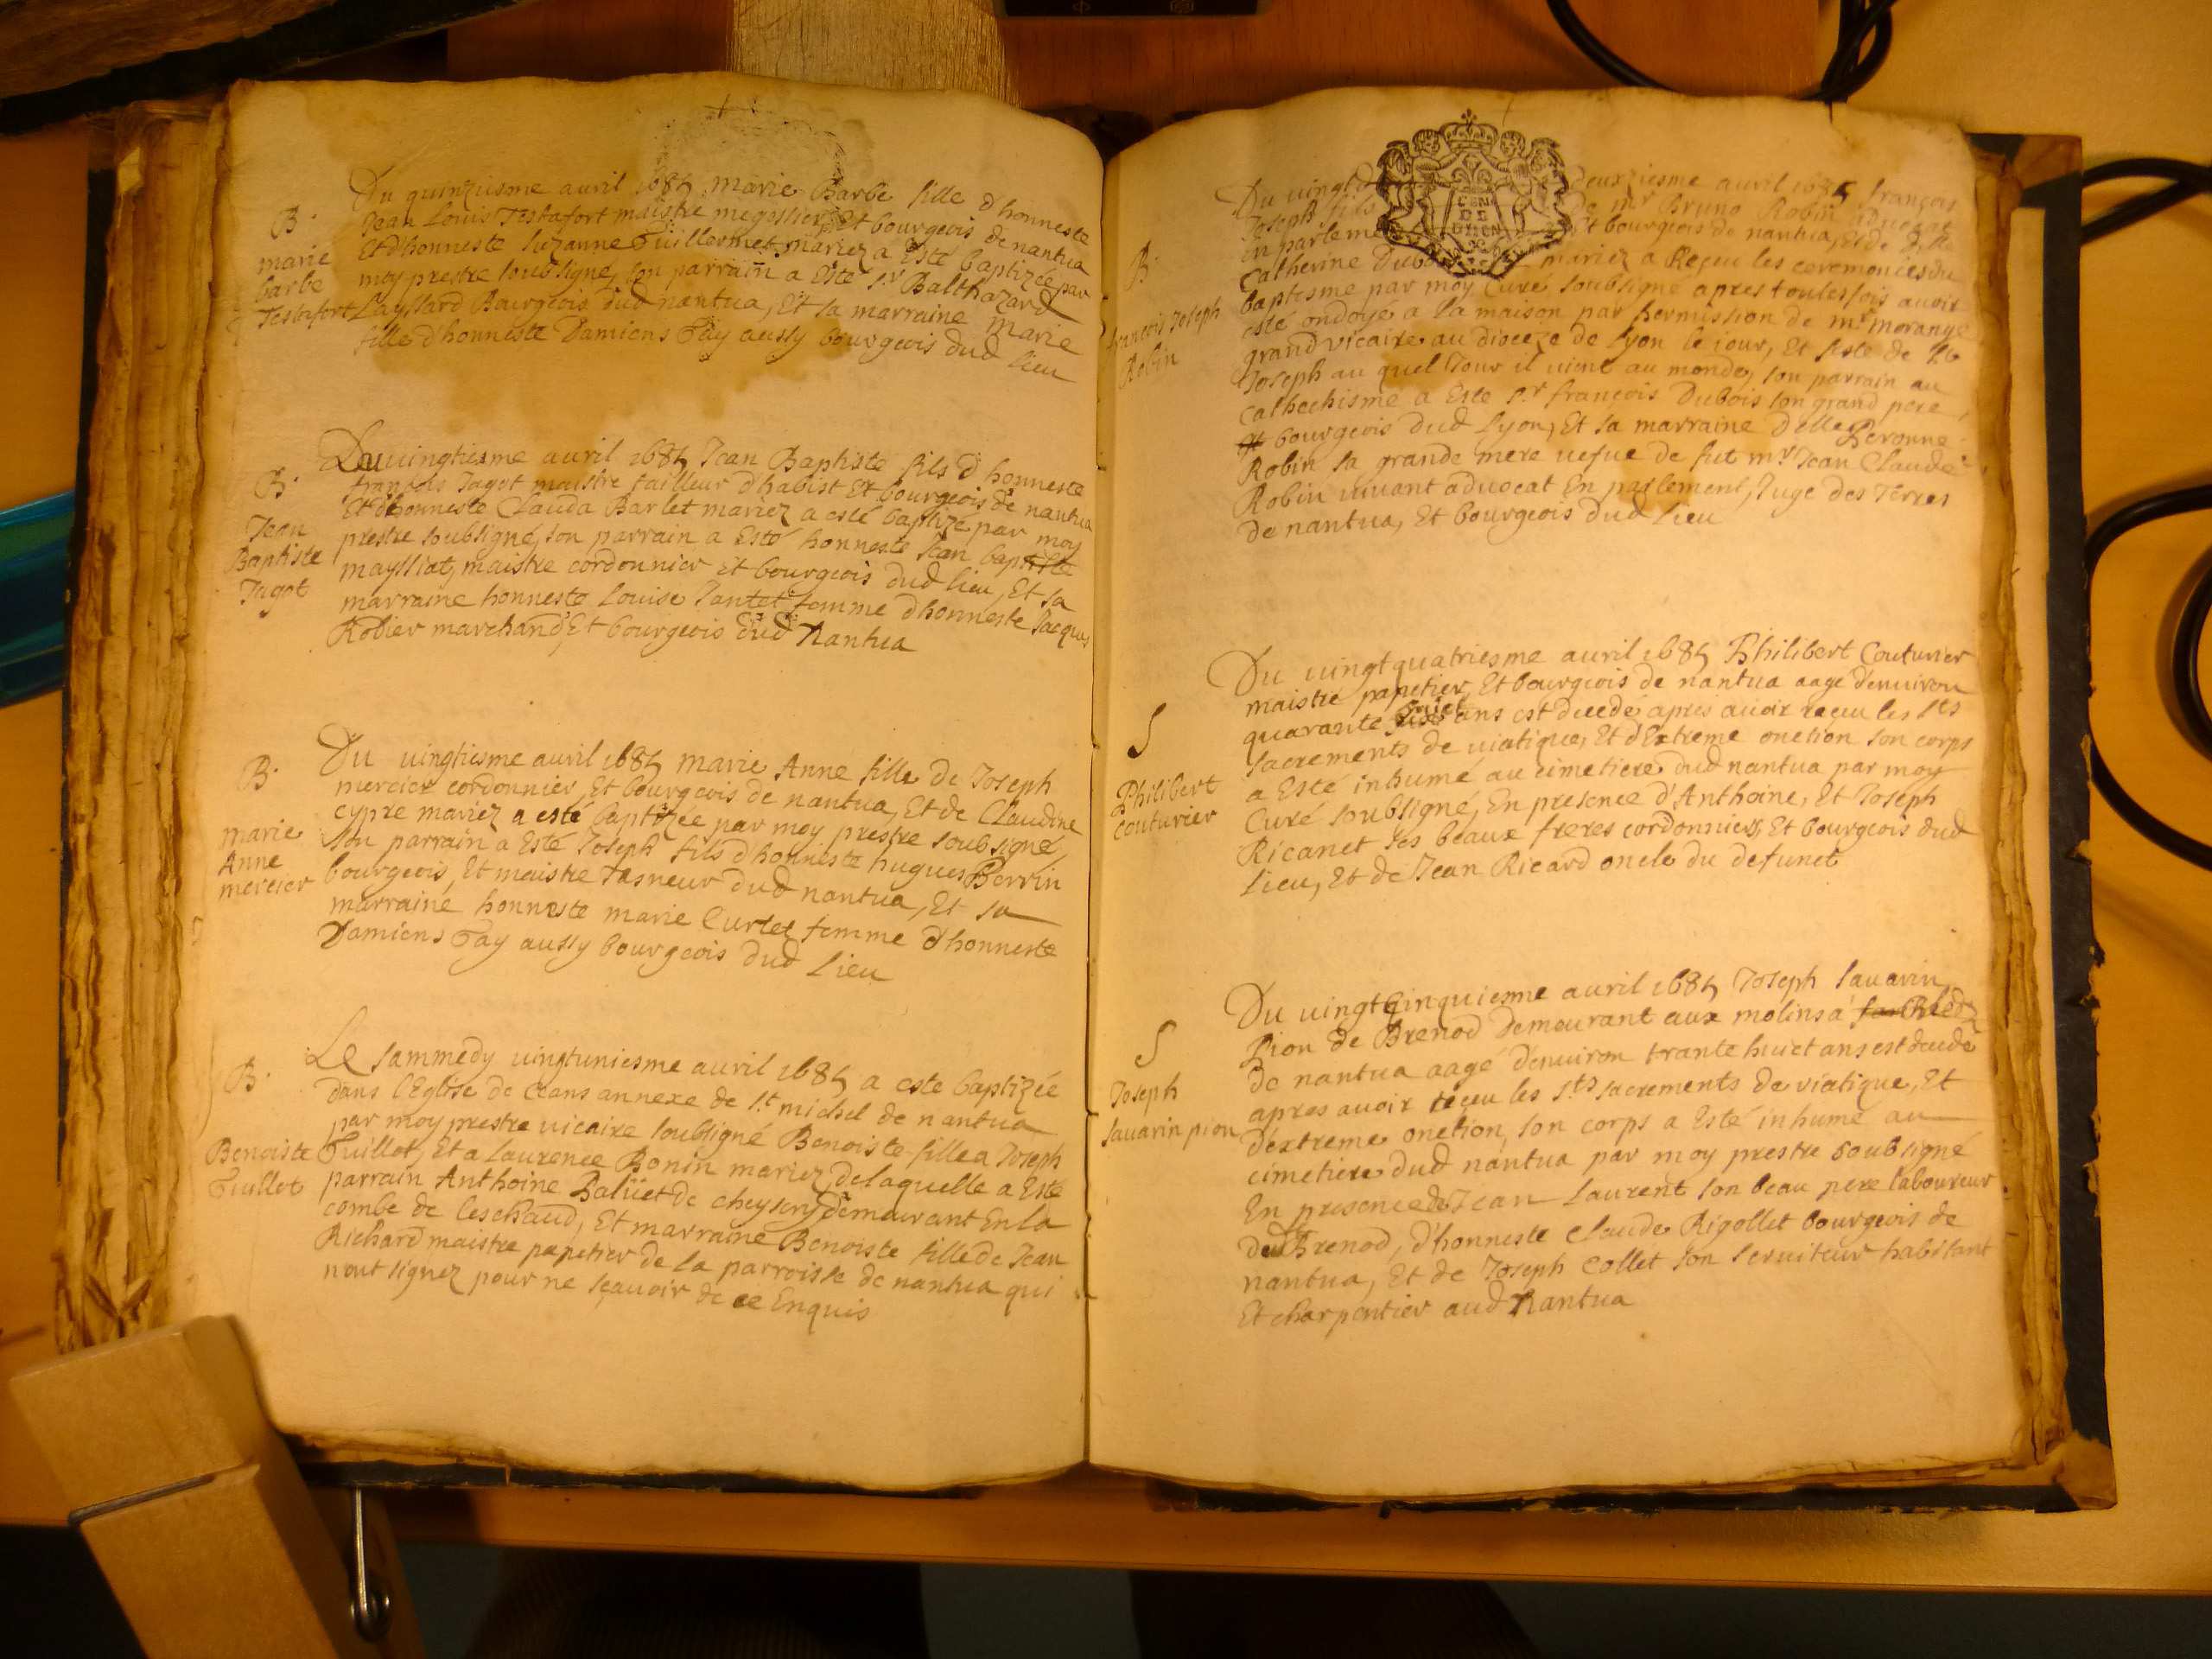 Du quinziesme avril 1685 marie Barbe fille d'honneste
Jean Louis Testafort maistre megissier, Et bourgeois de nantua
Et d'honneste suzanne Guillermet mariez a Esté baptizée par
moy prestre soubsigné, son parrain a Esté sr Balthazard
Layssard Bourgeois dud nantua, Et sa marraine marie
fille d'honneste Damiens Fay aussy bourgeois dud lieu
B.
marie
barbe
Testafort
Du vingtiesme avril 1685 Jean Baptiste fils d'honneste
françois Jagot maistre tailleur d'habist Et bourgeois de nantua
Et d'honneste Clauda Barlet mariez a esté baptizé par moy
prestre soubsigné, son parrain a Esté honneste Jean baptiste
mayssiat, maistre cordonnier Et bourgeois dud lieu, Et sa
marraine honneste Louise Jantet femme d'honneste Jacques
Robier marchand, Et bourgeois dud Nantua
B.
Jean
Baptiste
Jagot
Du vingtiesme avril 1685 marie Anne fille de Joseph
mercier cordonnier, Et bourgeois de nantua, Et de Claudine
cypre mariez a esté baptizée par moy prestre soubsigné,
son parrain a Esté Joseph fils d'honneste hugues Perrin
bourgeois, Et maistre tasneur dud nantua, Et sa
marraine honneste marie Curtet femme d'honneste
Damiens Fay aussy bourgeois dud lieu
B.
marie
Anne
mercier
Le sammedy vingtuniesme avril 1685 a este baptizée
dans l'Eglise de Ceans annexe de st michel de nantua
par moy prestre vicaire soubsigné Benoiste fille a Joseph
Guillot, Et a Laurence Bonin mariez, de laquelle a Esté
parrain Anthoine Baliiet de cheysery demeurant En la
combe de Leschaud, Et marraine Benoiste fille de Jean
Richard maistre papetier de la parroisse de nantua qui
nont signez pour ne sçavoir de ce Enquis
B.
Benoiste
Guillot
Du vingt deuxiesme avril 1685 françois
Joseph fils de mr Bruno Robin advocat
en parleme Et bourgeois de nantua, Et de Dlle
Catherine Dubo mariez a Reçeu les ceremonies du
baptesme par moy Curé soubsigné apres toutesfois avoir
esté ondoyé a la maison par permission de mr morange
grand vicaire au dioceze de lyon le jour, Et feste de St
Joseph au quel Jour il vient au monde, son parrain au
cathechisme a Este sr françois Dubois son grand pere,
Et bourgeois dud lyon, Et sa marraine Dlle Peronne
Robin sa grande mere vefue de fut mr Jean Claude
Robin vivant advocat En parlement, Juge des Terres
de nantua, Et bourgeois dud lieu
B.
francois Joseph
Robin
GEN
DE
Du vingtquatriesme avril 1685 Philibert Couturier
maistre papetier, Et bourgeois de nantua aagé d'environ
quarante huict ans est decedé apres avoir reçeu les sts
sacrements de viatique, Et d'Extreme onction son corps
a Esté inhumé au cimetiere dud nantua par moy
Curé soubsigné, En presence d'Anthoine, Et Joseph
Ricanet ses beaux freres cordonniers, Et bourgeois dud
Lieu, Et de Jean Ricard oncle du defunct
S
Philibert
couturier
Du vingtcinquiesme avril 1685 Joseph savarin
Pion de Brenod demeurant aux molins a
de nantua aagé d'environ trante huict ans est decedé
apres avoir reçeu les sts sacrements de viatique, Et
d'extreme onction, son corps a Esté inhumé au
cimetiere dud nantua par moy prestre soubsigné
En presence de Jean Laurent son beau pere laboureur
dud Brenod, d'honneste Claude Rigollet bourgeois de
nantua, Et de Joseph Collet son serviteur habitant
Et charpentier aud Nantua
S
Joseph
savarin pion